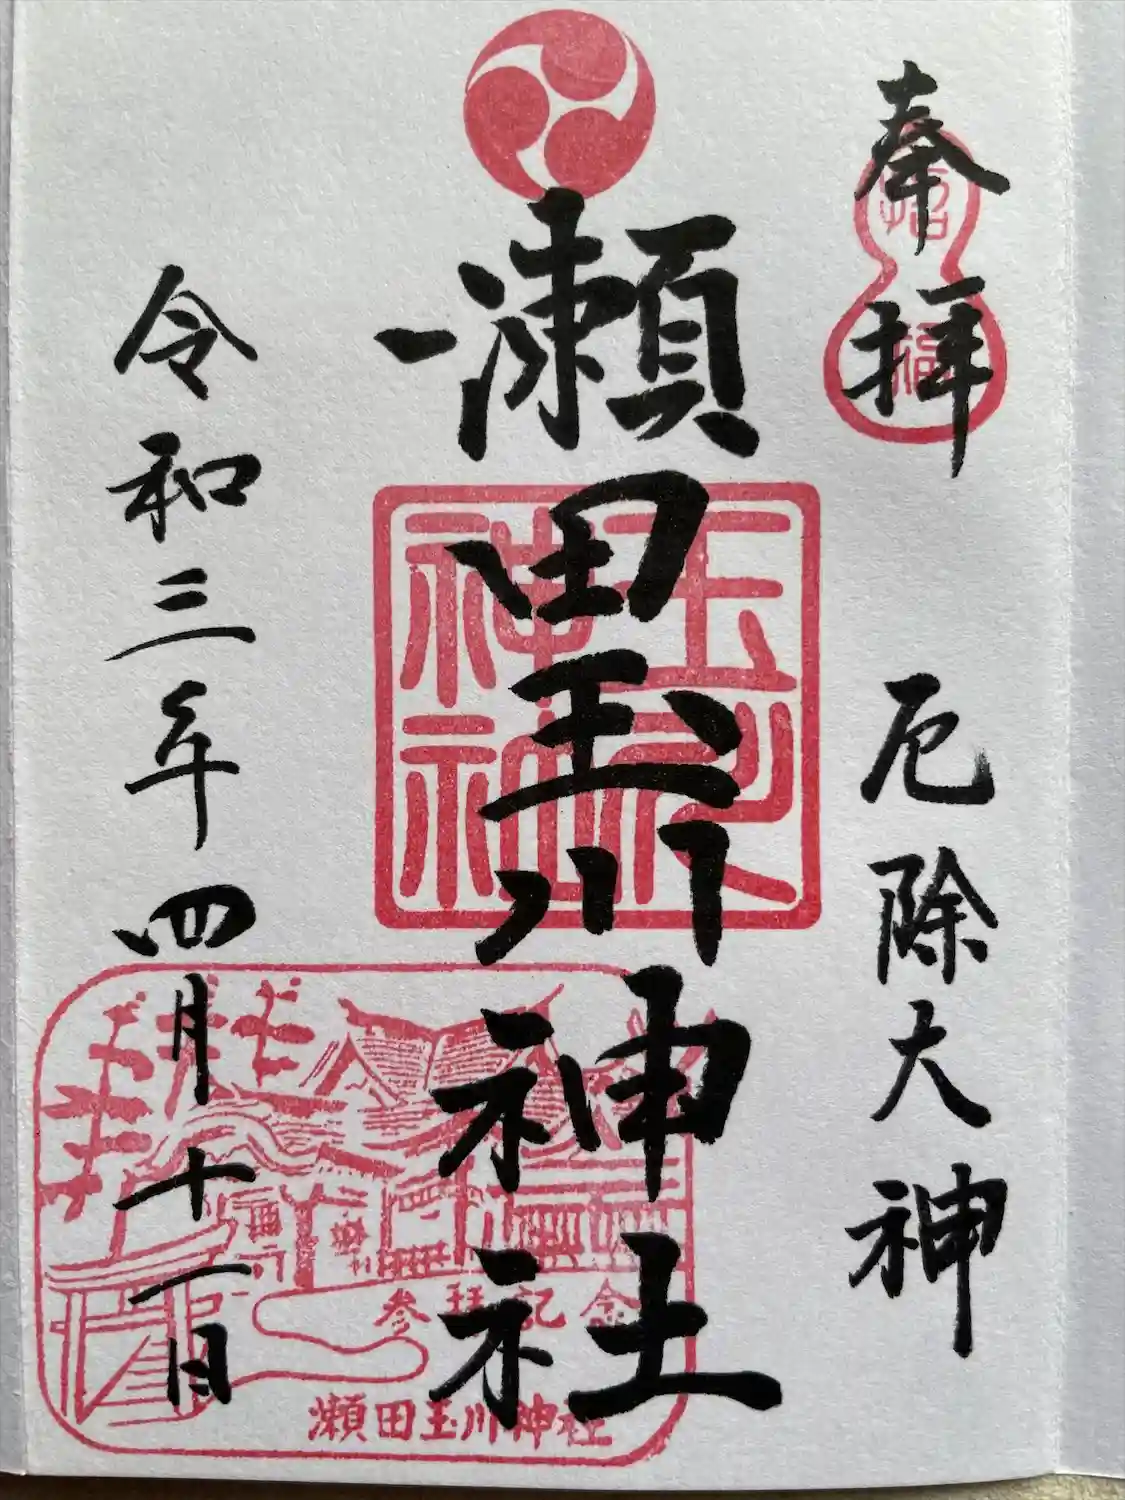 奉拝
招福
厄除大神
瀬田玉川神社
玉川神社
令和三年四月十一日
参拝記念
瀬田玉川神社